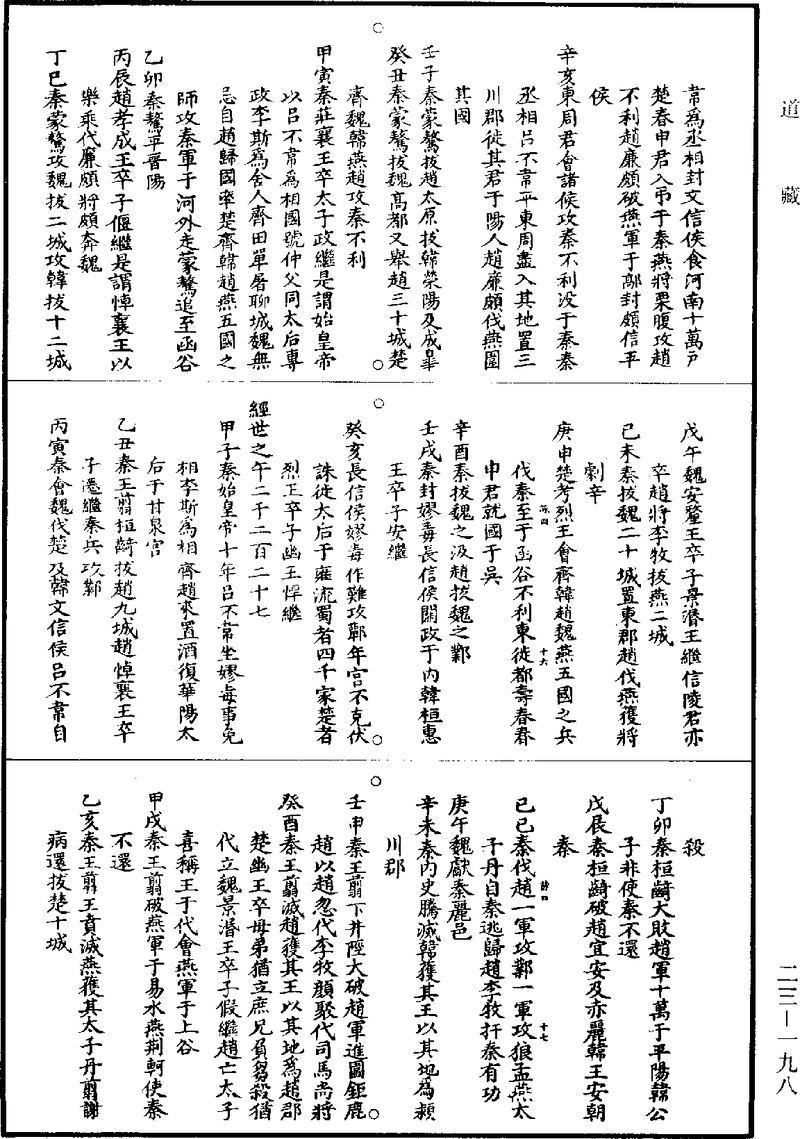 道藏
常為丞相封文信侯食河南十萬戶
楚春申君入弔于秦燕將栗腹攻趙
不利趙廉頗破燕軍于鄗封頗信平
侯
辛亥東周君會諸侯攻秦不利没于秦秦
丞相呂不韋平東周盡入其地置三
川郡徙其君于陽人趙廉頗伐燕圍
其國
壬子秦蒙驁拔趙太原拔韓滎陽及成皋
癸丑秦蒙驁拔魏高都又舉趙三十城楚
齊魏韓燕趙攻秦不利
甲寅秦莊襄王卒太子政繼是謂始皇帝
以呂不韋為相國號仲父同太后專
政李斯為舍人齊田單屠聊城魏無
忌自趙歸國率楚齊韓趙燕五國之
師攻秦軍于河外走蒙驁追至函谷
乙卯秦驁平晉陽
丙辰趙孝成王卒子偃繼是謂悼襄王以
樂乘代廉頗將頗奔魏
丁巳秦蒙驁攻魏拔二城攻韓拔十二城
戊午魏安釐王卒子景湣王繼信陵君亦
卒趙將李牧拔燕二城
已未秦拔魏二十城置東郡趙伐燕獲將
劇辛
庚申楚考烈王會齊韓趙魏燕五國之兵
伐秦至于函谷不利東徙都壽春春
申君就國于吳
辛酉秦拔魏之汲趙拔魏之鄴
壬戌秦封嫪毐長信侯關政于内韓桓惠
王卒子安繼
癸亥長信侯嫪毐作難攻鄿年宮不克伏
誅徙太后于雍流蜀者四千家楚考
烈王卒子幽王悍繼
經世之午二千二百二十七
甲子秦始皇帝十年呂不韋坐嫪毐事免
相李斯為相齊趙來置酒復華陽太
后于甘泉宮
乙丑秦王翦桓齮拔趙九城趙悼襄王卒
子遷繼秦兵攻鄴
丙寅秦會魏伐楚及韓文信侯呂不韋自
殺
丁卯秦桓齮大敗趙軍十萬于平陽韓公
子非使秦不還
戊辰秦桓齮破趙宜安及赤麗韓王安朝
秦
已巳秦伐趙一軍攻鄴一軍攻狼孟燕太
子丹自秦逃歸趙李牧扞秦有功
庚午魏獻秦麗邑
辛未秦内史騰滅韓獲其王以其地為潁
川郡
壬申秦王翦下井陘大破趙軍進圍鉅鹿
趙以趙忽代李牧顔聚代司馬尚將
癸酉秦王翦滅趙獲其王以其地為趙郡
楚幽王卒母弟猶立庶兄負芻殺猶
代立魏景湣王卒子假繼趙亡太子
喜稱王于代會燕軍于上谷
甲戌秦王翦破燕軍于易水燕荆軻使秦
不還
乙亥秦王翦王賁滅燕獲其太子丹翦謝
病還拔楚十城
二三一一九八